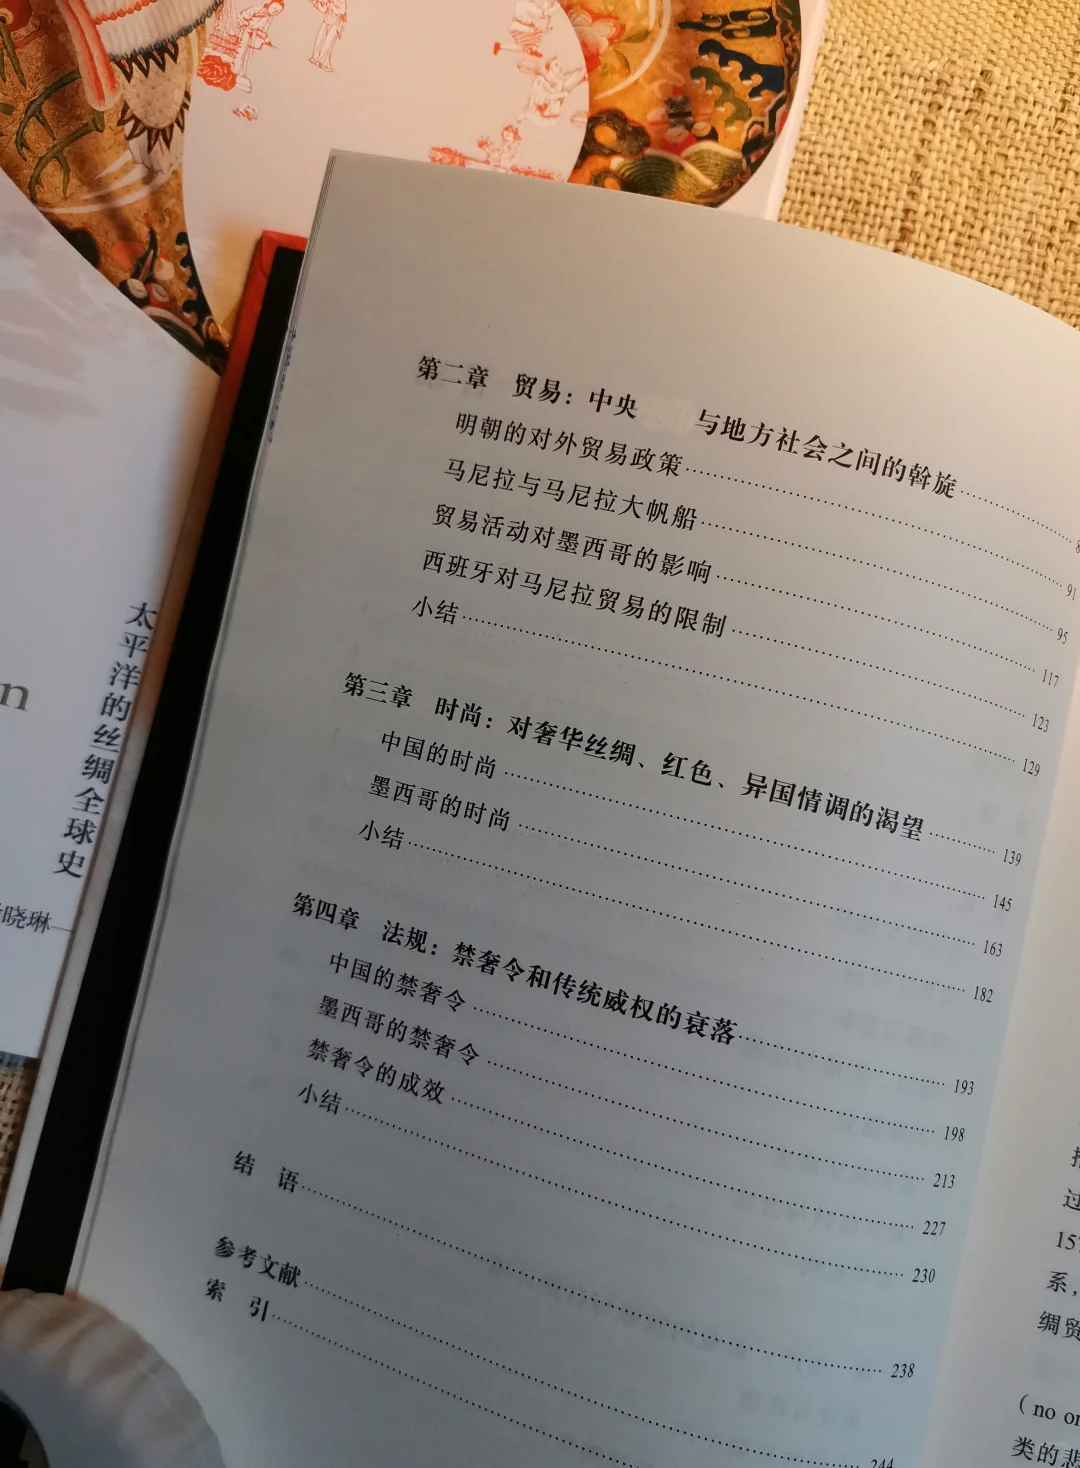 第二章 贸易：中央 与地方社会之间的斡旋
明朝的对外贸易政策 91
马尼拉与马尼拉大帆船 95
贸易活动对墨西哥的影响 117
西班牙对马尼拉贸易的限制 123
小结 129
第三章 时尚：对奢华丝绸、红色、异国情调的渴望 139
中国的时尚 145
墨西哥的时尚 163
小结 182
第四章 法规：禁奢令和传统威权的衰落 193
中国的禁奢令 198
墨西哥的禁奢令 213
禁奢令的成效 227
小结 230
结 语 238
参考文献 244
索 引
太平洋的丝绸全球史
晓琳
n
过
157
系，
绸贸
（no
类的悲